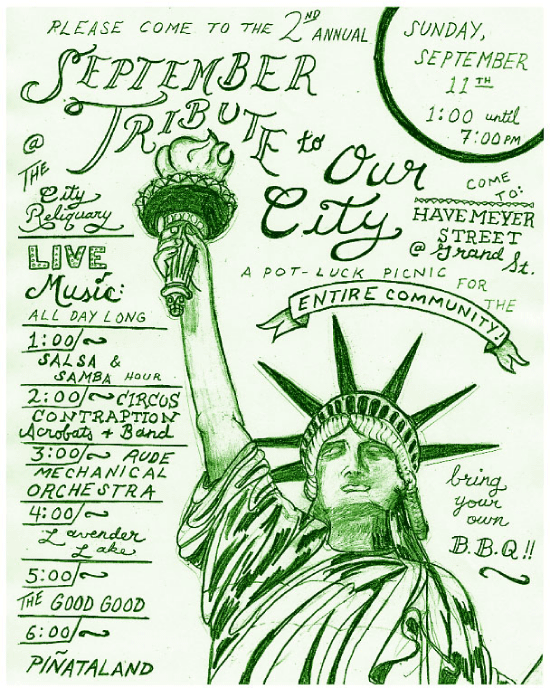 PLEASE COME TO THE 2ND ANNUAL
SEPTEMBER
TRIBUTE to
Our
City
SUNDAY,
SEPTEMBER
11TH
1:00 until
7:00PM
COME
TO:
HAVEMEYER
STREET
@ Grand St.
@
THE
City
Reliquary
A POT-LUCK PICNIC FOR
THE
ENTIRE COMMUNITY!
LIVE
Music:
ALL DAY LONG
1:00/~
SALSA &
SAMBA HOUR
2:00/~ CIRCUS
CONTRAPTION
Acrobats + Band
3:00/~ AUDE
MECHANICAL
ORCHESTRA
4:00/~
Lavender
Lake
5:00/~
THE GOOD GOOD
6:00/~
PIÑATALAND
bring
your
own
B.B.Q!!